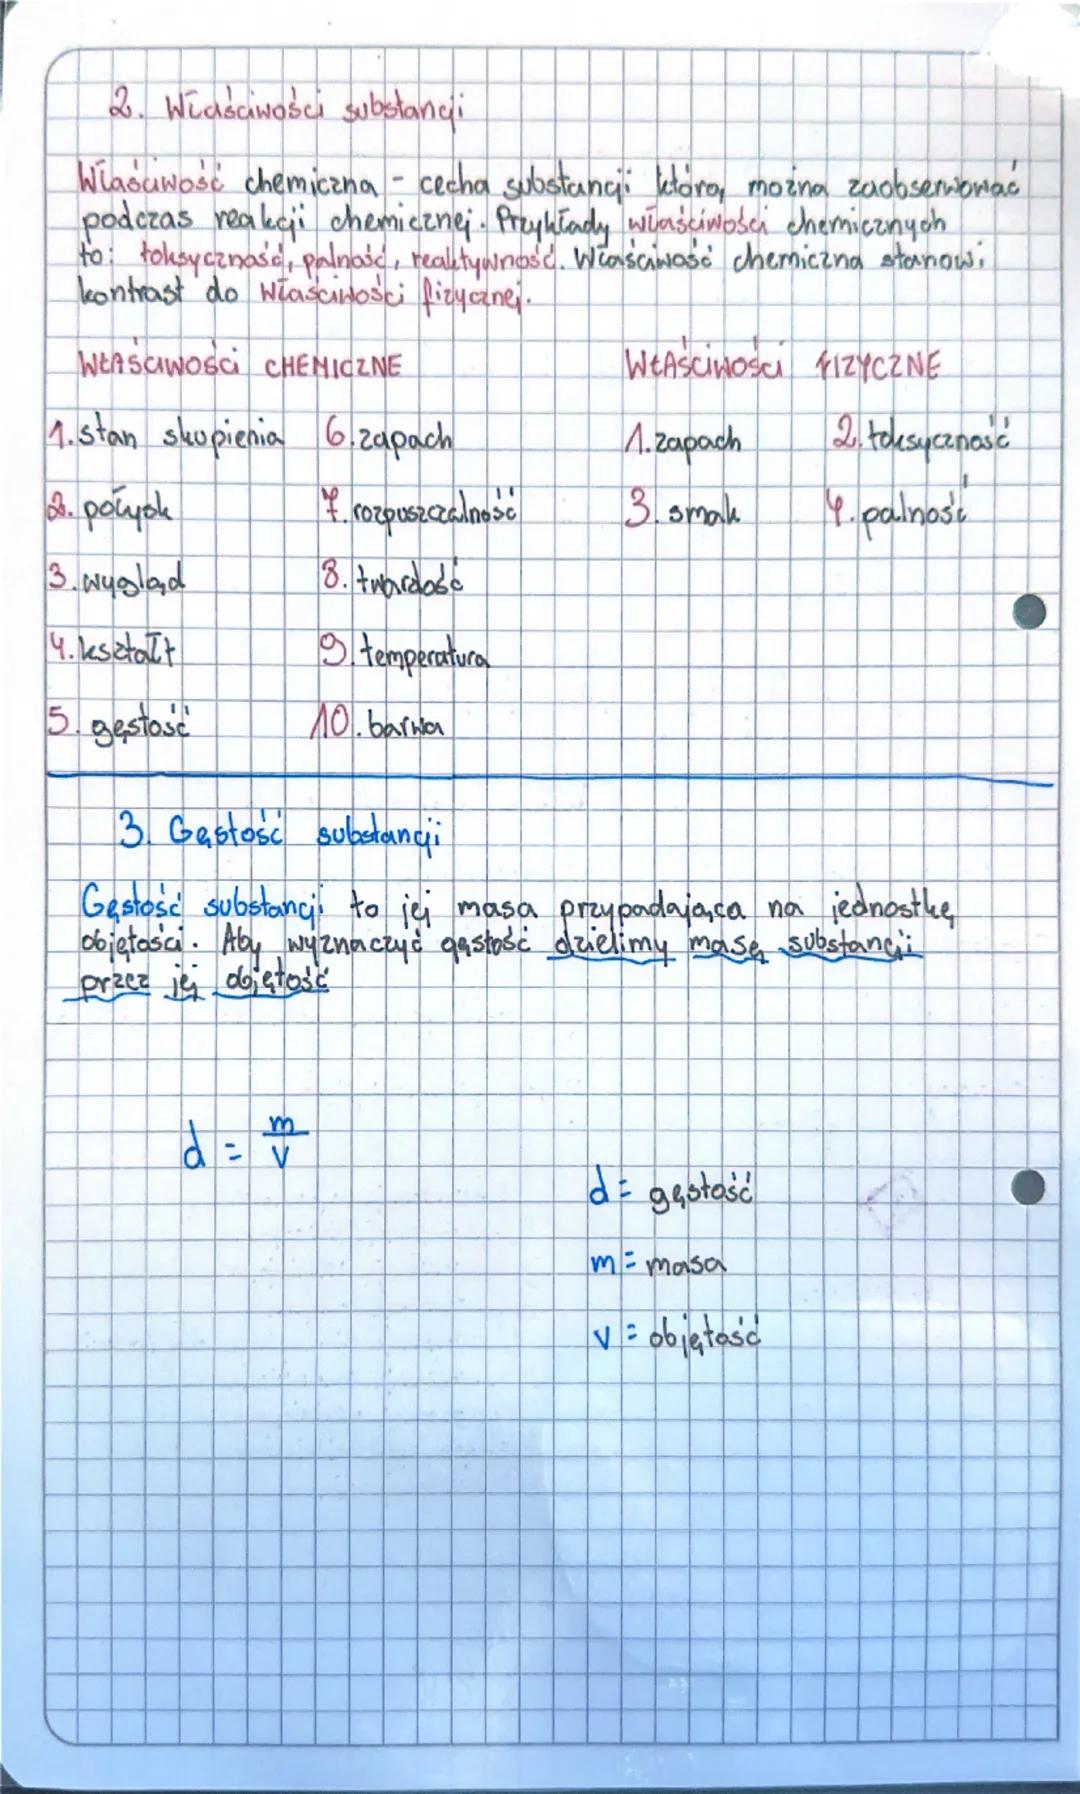 2. Właściwości substancji
Właściwość chemiczna - cecha substancji którą można zaobserwować
podczas reakcji chemicznej. Przykłady właściwości chemicznych
to: toksyczność, palność, reaktywność. Właściwość chemiczna stanowi
kontrast do właściwości fizycznej.
WŁAŚCIWOŚCI CHEMICZNE WŁAŚCIWOŚCI FIZYCZNE
1. stan skupienia 6. zapach 1. zapach 2. toksyczność
2. połysk 7. rozpuszczalność 3. smak 4. palność
3. wygląd 8. twardość
4. kształt 9. temperatura
5. gęstość 10. barwa
3. Gęstość substancji
Gęstość substancji to jej masa przypadająca na jednostkę
objętości. Aby wyznaczyć gęstość dzielimy masę substancji
przez jej objętość
d = m/v
d = gęstość
m = masa
v = objętość